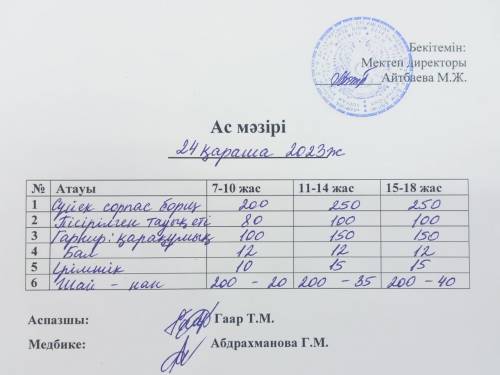 Бекітемін:
Мектеп директоры
Айтбаева М.Ж.
Ас мәзірі
24 қараша 2023ж
№ Атауы 7-10 жас 11-14 жас 15-18 жас
1 Сүйек сорпас борщ 200 250 250
2 Пісірілген тауық еті 80 100 100
3 Гарнир: қарақұмық 100 150 150
4 Бал 12 12 12
5 Ірімшік 10 15 15
6 Шай - нан 200 - 20 200 - 35 200 - 40
Аспазшы: Гаар Т.М.
Медбике: Абдрахманова Г.М.